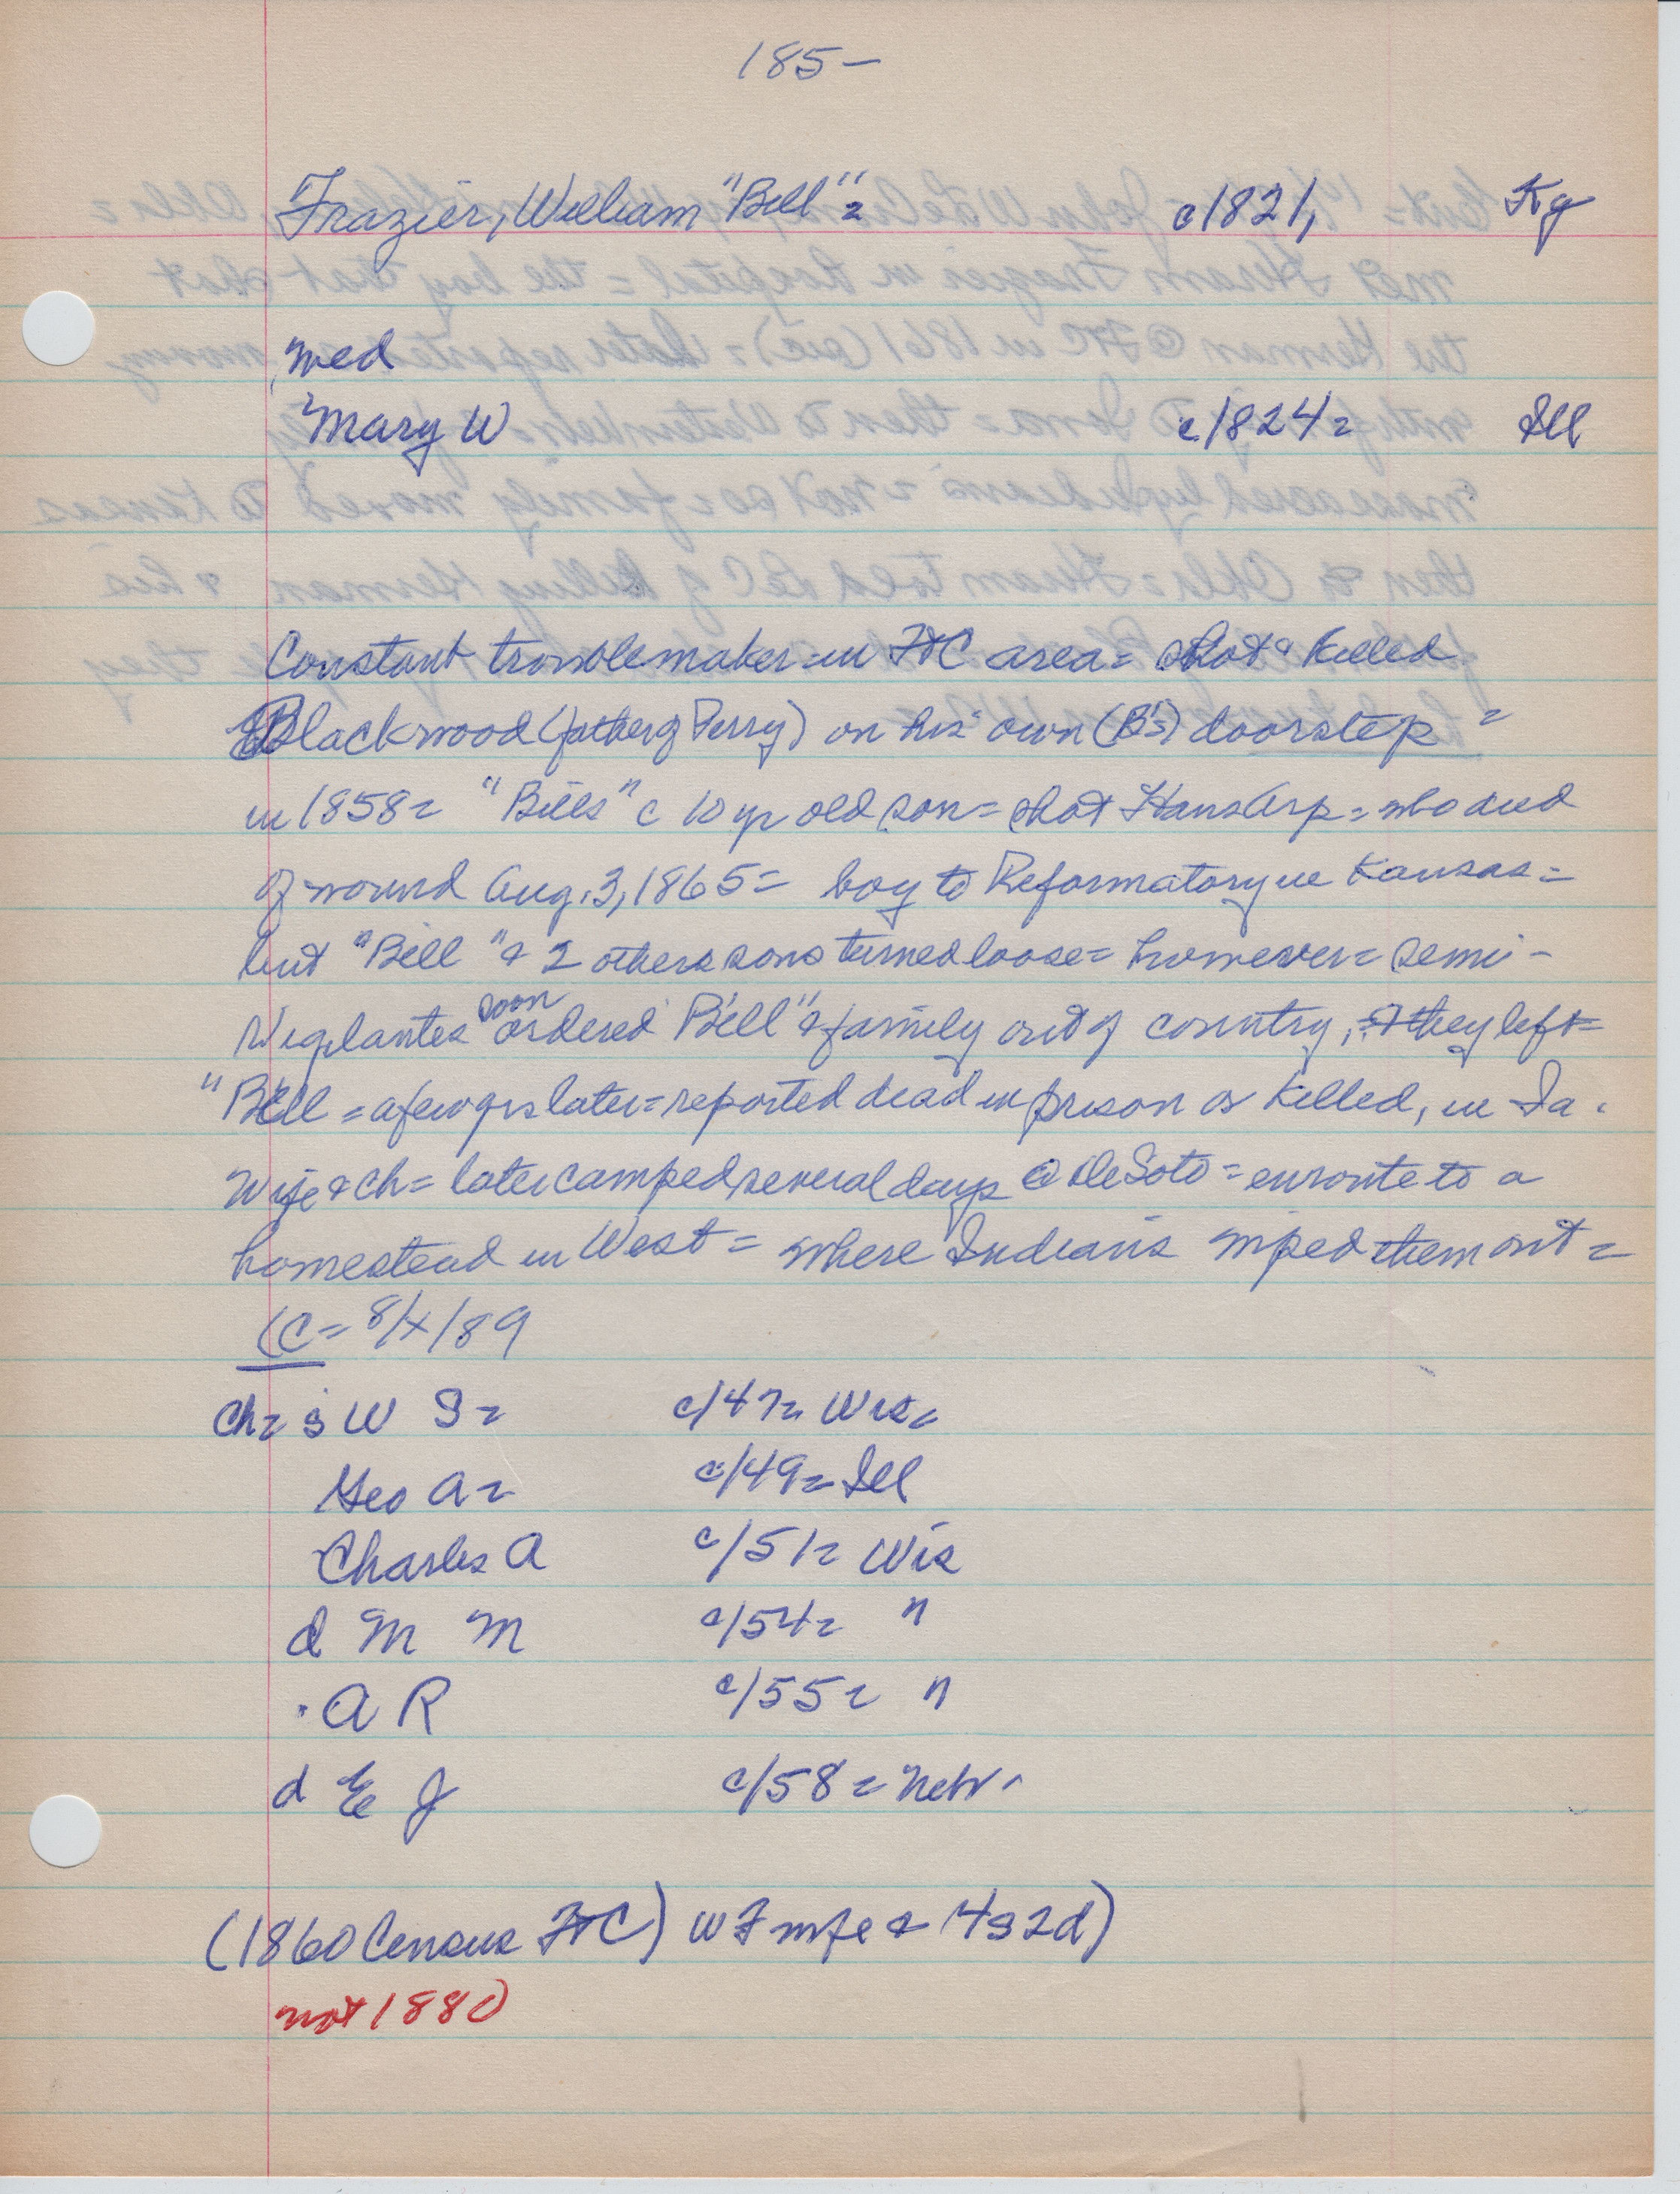 185-
Frazier, William "Bill" = c1821, Ky
med
Mary W c1824= Ill
Constant troublemaker in FtC area = shot & killed
Blackwood (father of Perry) on his own (B's) doorstep =
in 1858= "Bills" c 10 yr old son = shot Hans Arp = who died
of wound Aug. 3, 1865= boy to Reformatory in Kansas =
but "Bill" & 2 others sons turned loose = however = semi-
Vigilantes soon ordered Bill" & family out of country, & they left =
"Bill = a few yrs later = reported dead in prison or killed, in Ia.
Wife & ch = later camped several days @ DeSoto = enroute to a
homestead in West = where Indians wiped them out =
(C= 8/4/89
Ch= s W S= c/47= Wis=
Geo A= c/49= Ill
Charles A c/51= Wis
d M M c/54= "
A R c/55= "
d E J c/58= Nebr
(1860 Census FtC) WF wife & 4s 2d)
not 1880